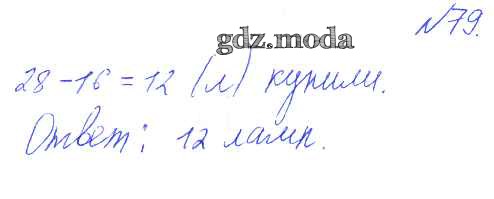 №79.
gdz.moda
28 - 16 = 12 (л) купили.
Ответ: 12 ламп.